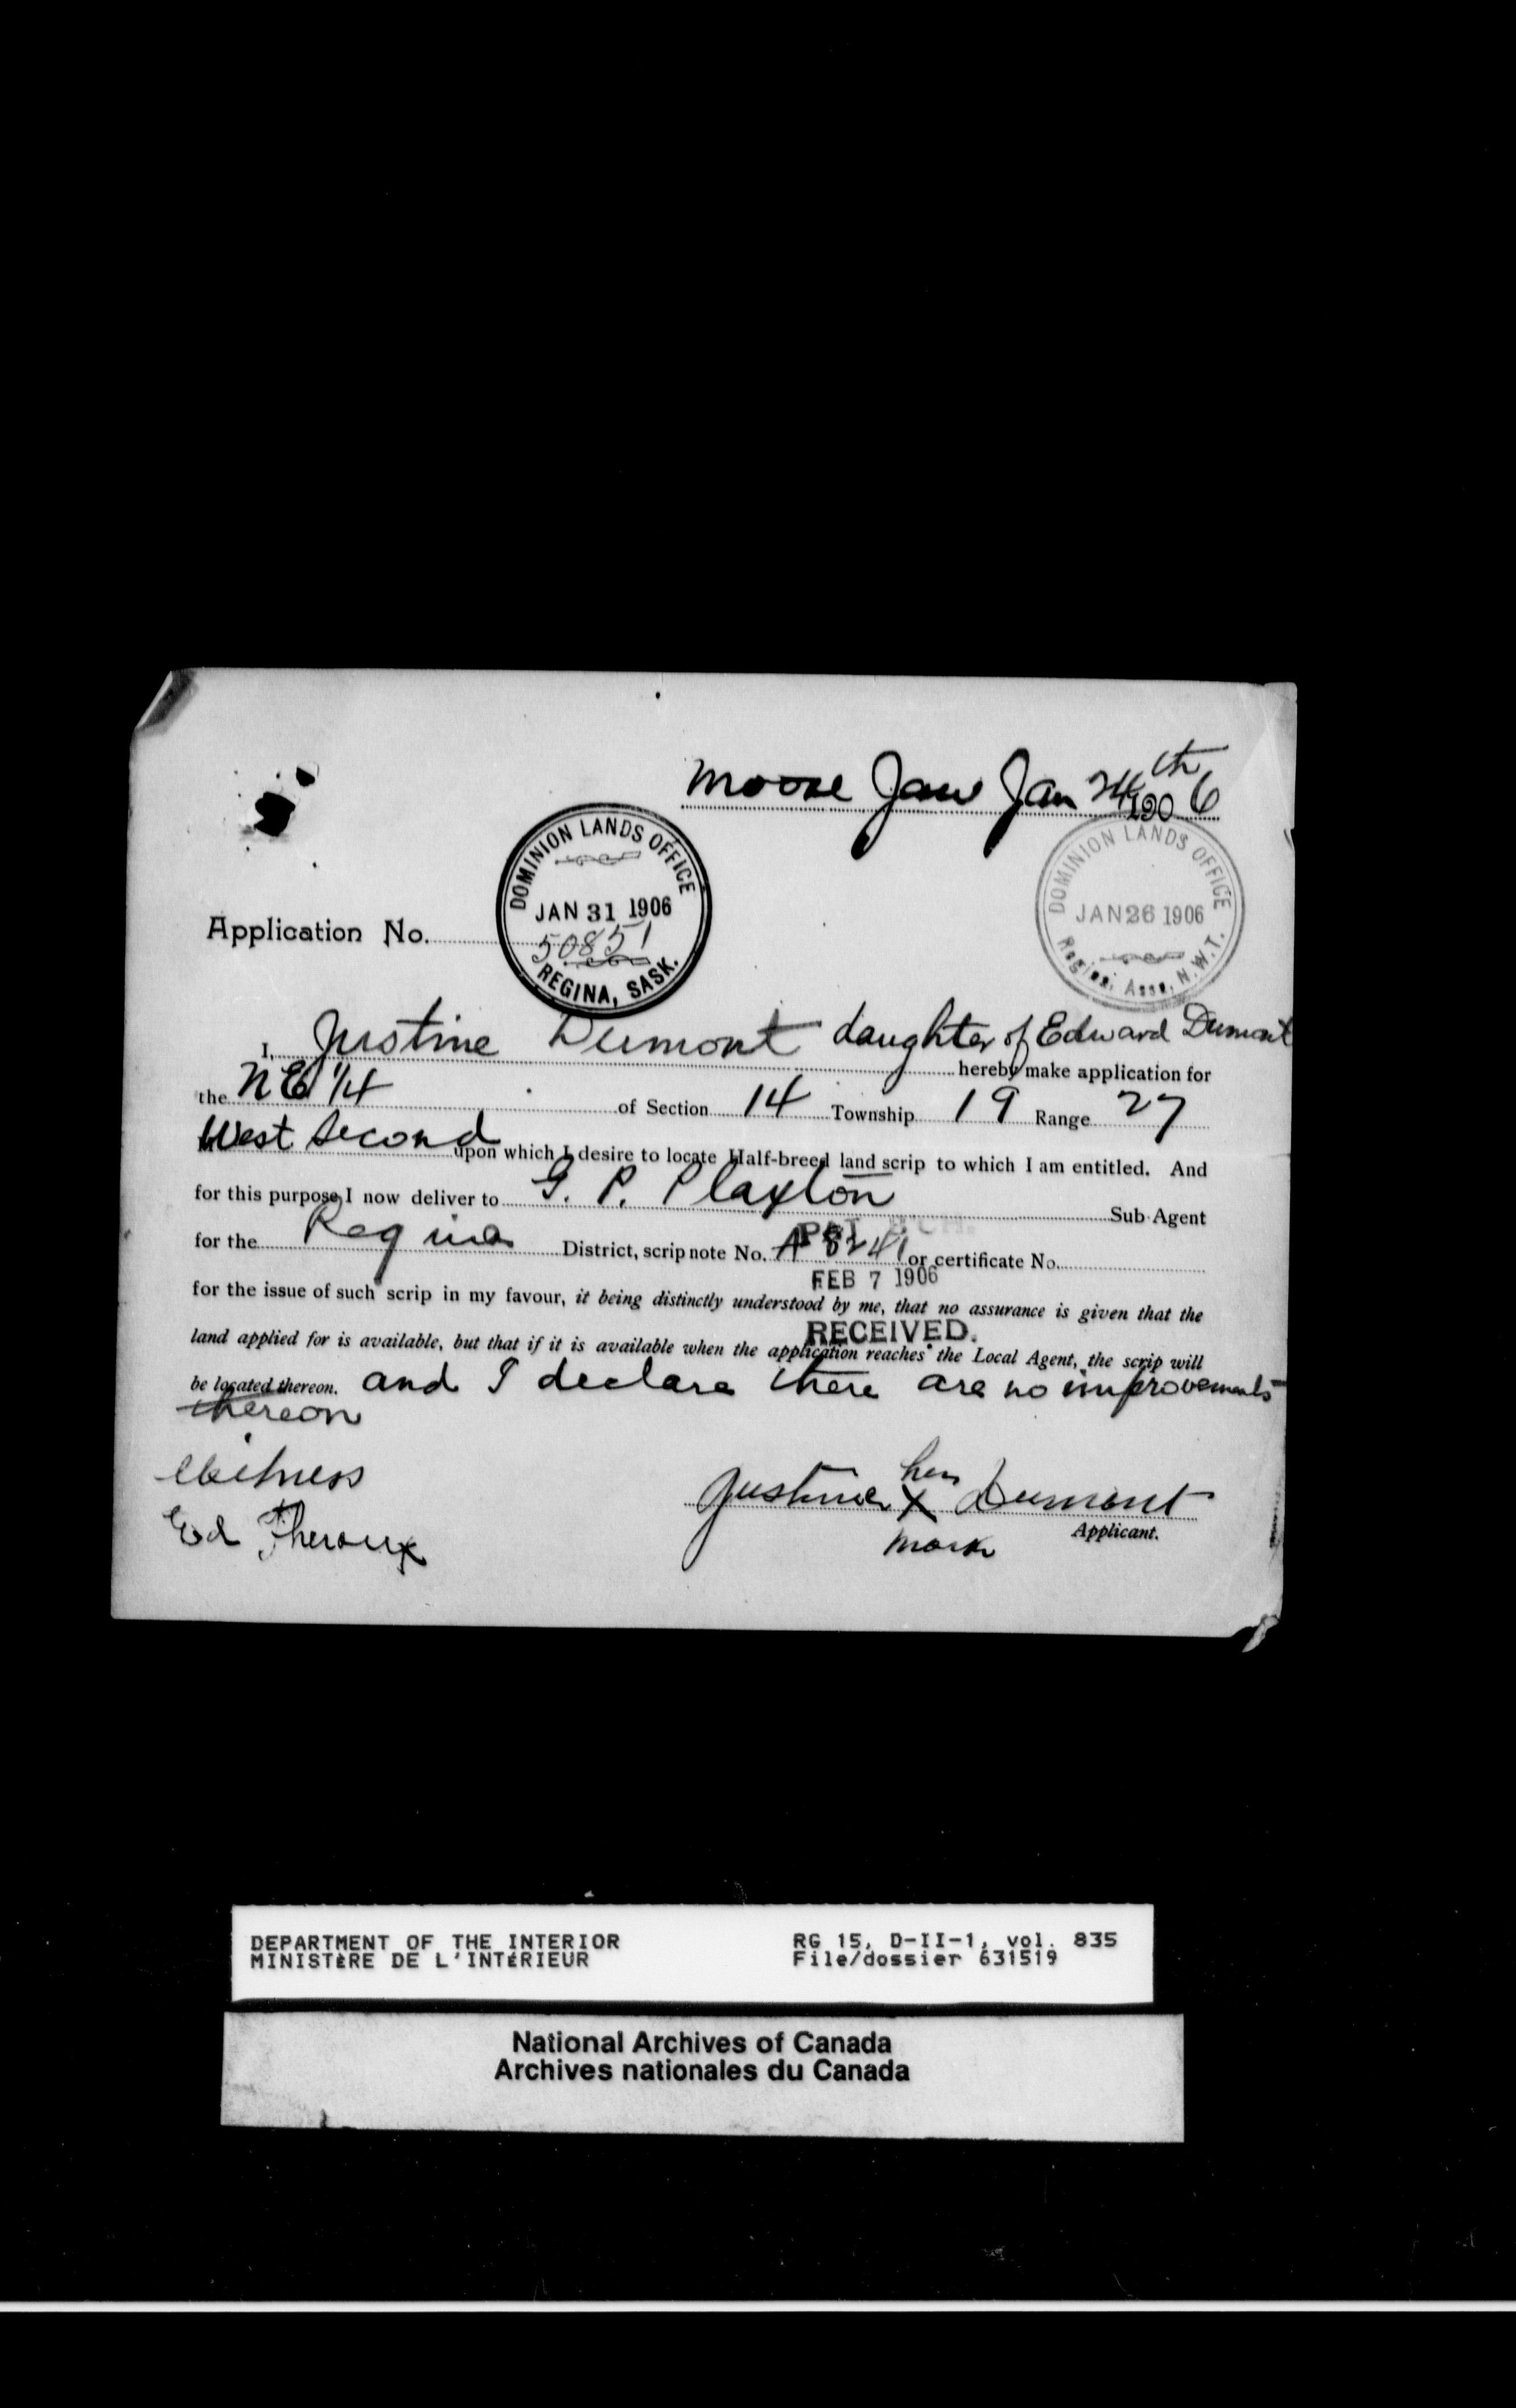 Moose Jaw Jan 24th 1906
DOMINION LANDS OFFICE
JAN 31 1906
REGINA, SASK.
DOMINION LANDS OFFICE
JAN 26 1906
Regina, Assa, N.W.T.
Application No. 50851
I, Justine Dumont daughter of Edward Dumont
hereby make application for
the NE 1/4 of Section 14 Township 19 Range 27
West Second upon which I desire to locate Half-breed land scrip to which I am entitled. And
for this purpose I now deliver to G. P. Plaxton Sub-Agent
for the Regina District, scrip note No. A 8241 or certificate No.
FEB 7 1906
for the issue of such scrip in my favour, it being distinctly understood by me, that no assurance is given that the
RECEIVED.
land applied for is available, but that if it is available when the application reaches the Local Agent, the scrip will
be located thereon. and I declare there are no improvements
thereon
Witness
Ed Theroux
her
Justine X Dumont
mark
Applicant.
DEPARTMENT OF THE INTERIOR
MINISTÈRE DE L'INTÉRIEUR
RG 15, D-II-1, vol. 835
File/dossier 631519
National Archives of Canada
Archives nationales du Canada